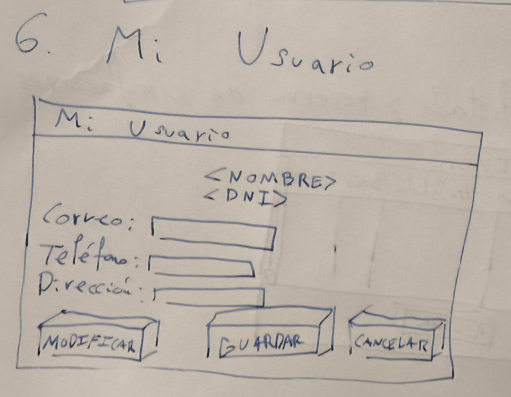 6. Mi Usuario
Mi Usuario
<NOMBRE>
<DNI>
Correo:
Teléfono:
Dirección:
MODIFICAR GUARDAR CANCELAR